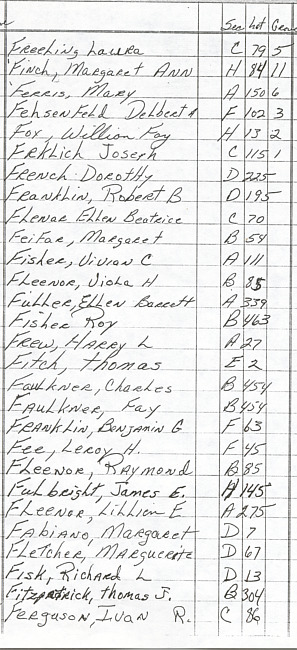 Sec Lot Grave
Freehling Laura C 79 5
Finch, Margaret Ann H 84 11
Ferris, Mary A 150 6
Fehsenfeld Delbert A F 102 3
Fox, Willion Foy H 13 2
Erklich Joseph C 115 1
French Dorothy D 225
Franklin, Robert B D 195
Flenar Ellen Beatrice C 70
Feifar, Margaret B 54
Fisher, Vivian C A 111
Fleenor, Viola H B 85
Fuller, Ellen Barrott A 339
Fisher Roy B 463
Frew, Harry L A 27
Fitch, Thomas E 2
Faulkner, Charles B 454
Faulkner, Fay B 454
Franklin, Benjamin G F 63
Fee, Leroy H. F 45
Fleenor, Raymond B 85
Fulbright, James E. H 145
Fleenor, Lillien E A 275
Fabiano, Margaret D 7
Fletcher, Marguerete D 67
Fisk, Richard L D 13
Fitzpatrick, Thomas J. B 304
Ferguson, Ivan R. C 86